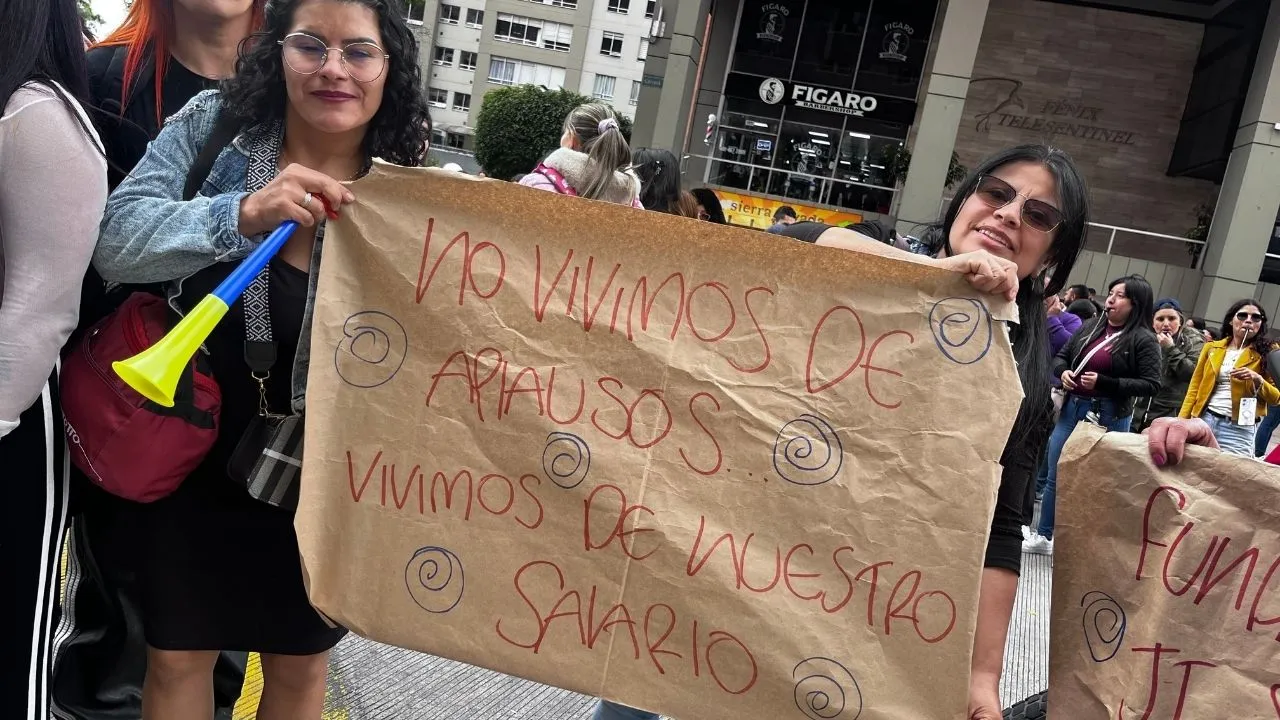 FIGARO
FIGARO
FIGARO
BARBERSHOP
FÉNIX
TELESENTINEL
sierra
NO VIVIMOS DE
APlAUSOS...
VIVIMOS DE NUESTRO
SAlARIO
FUND